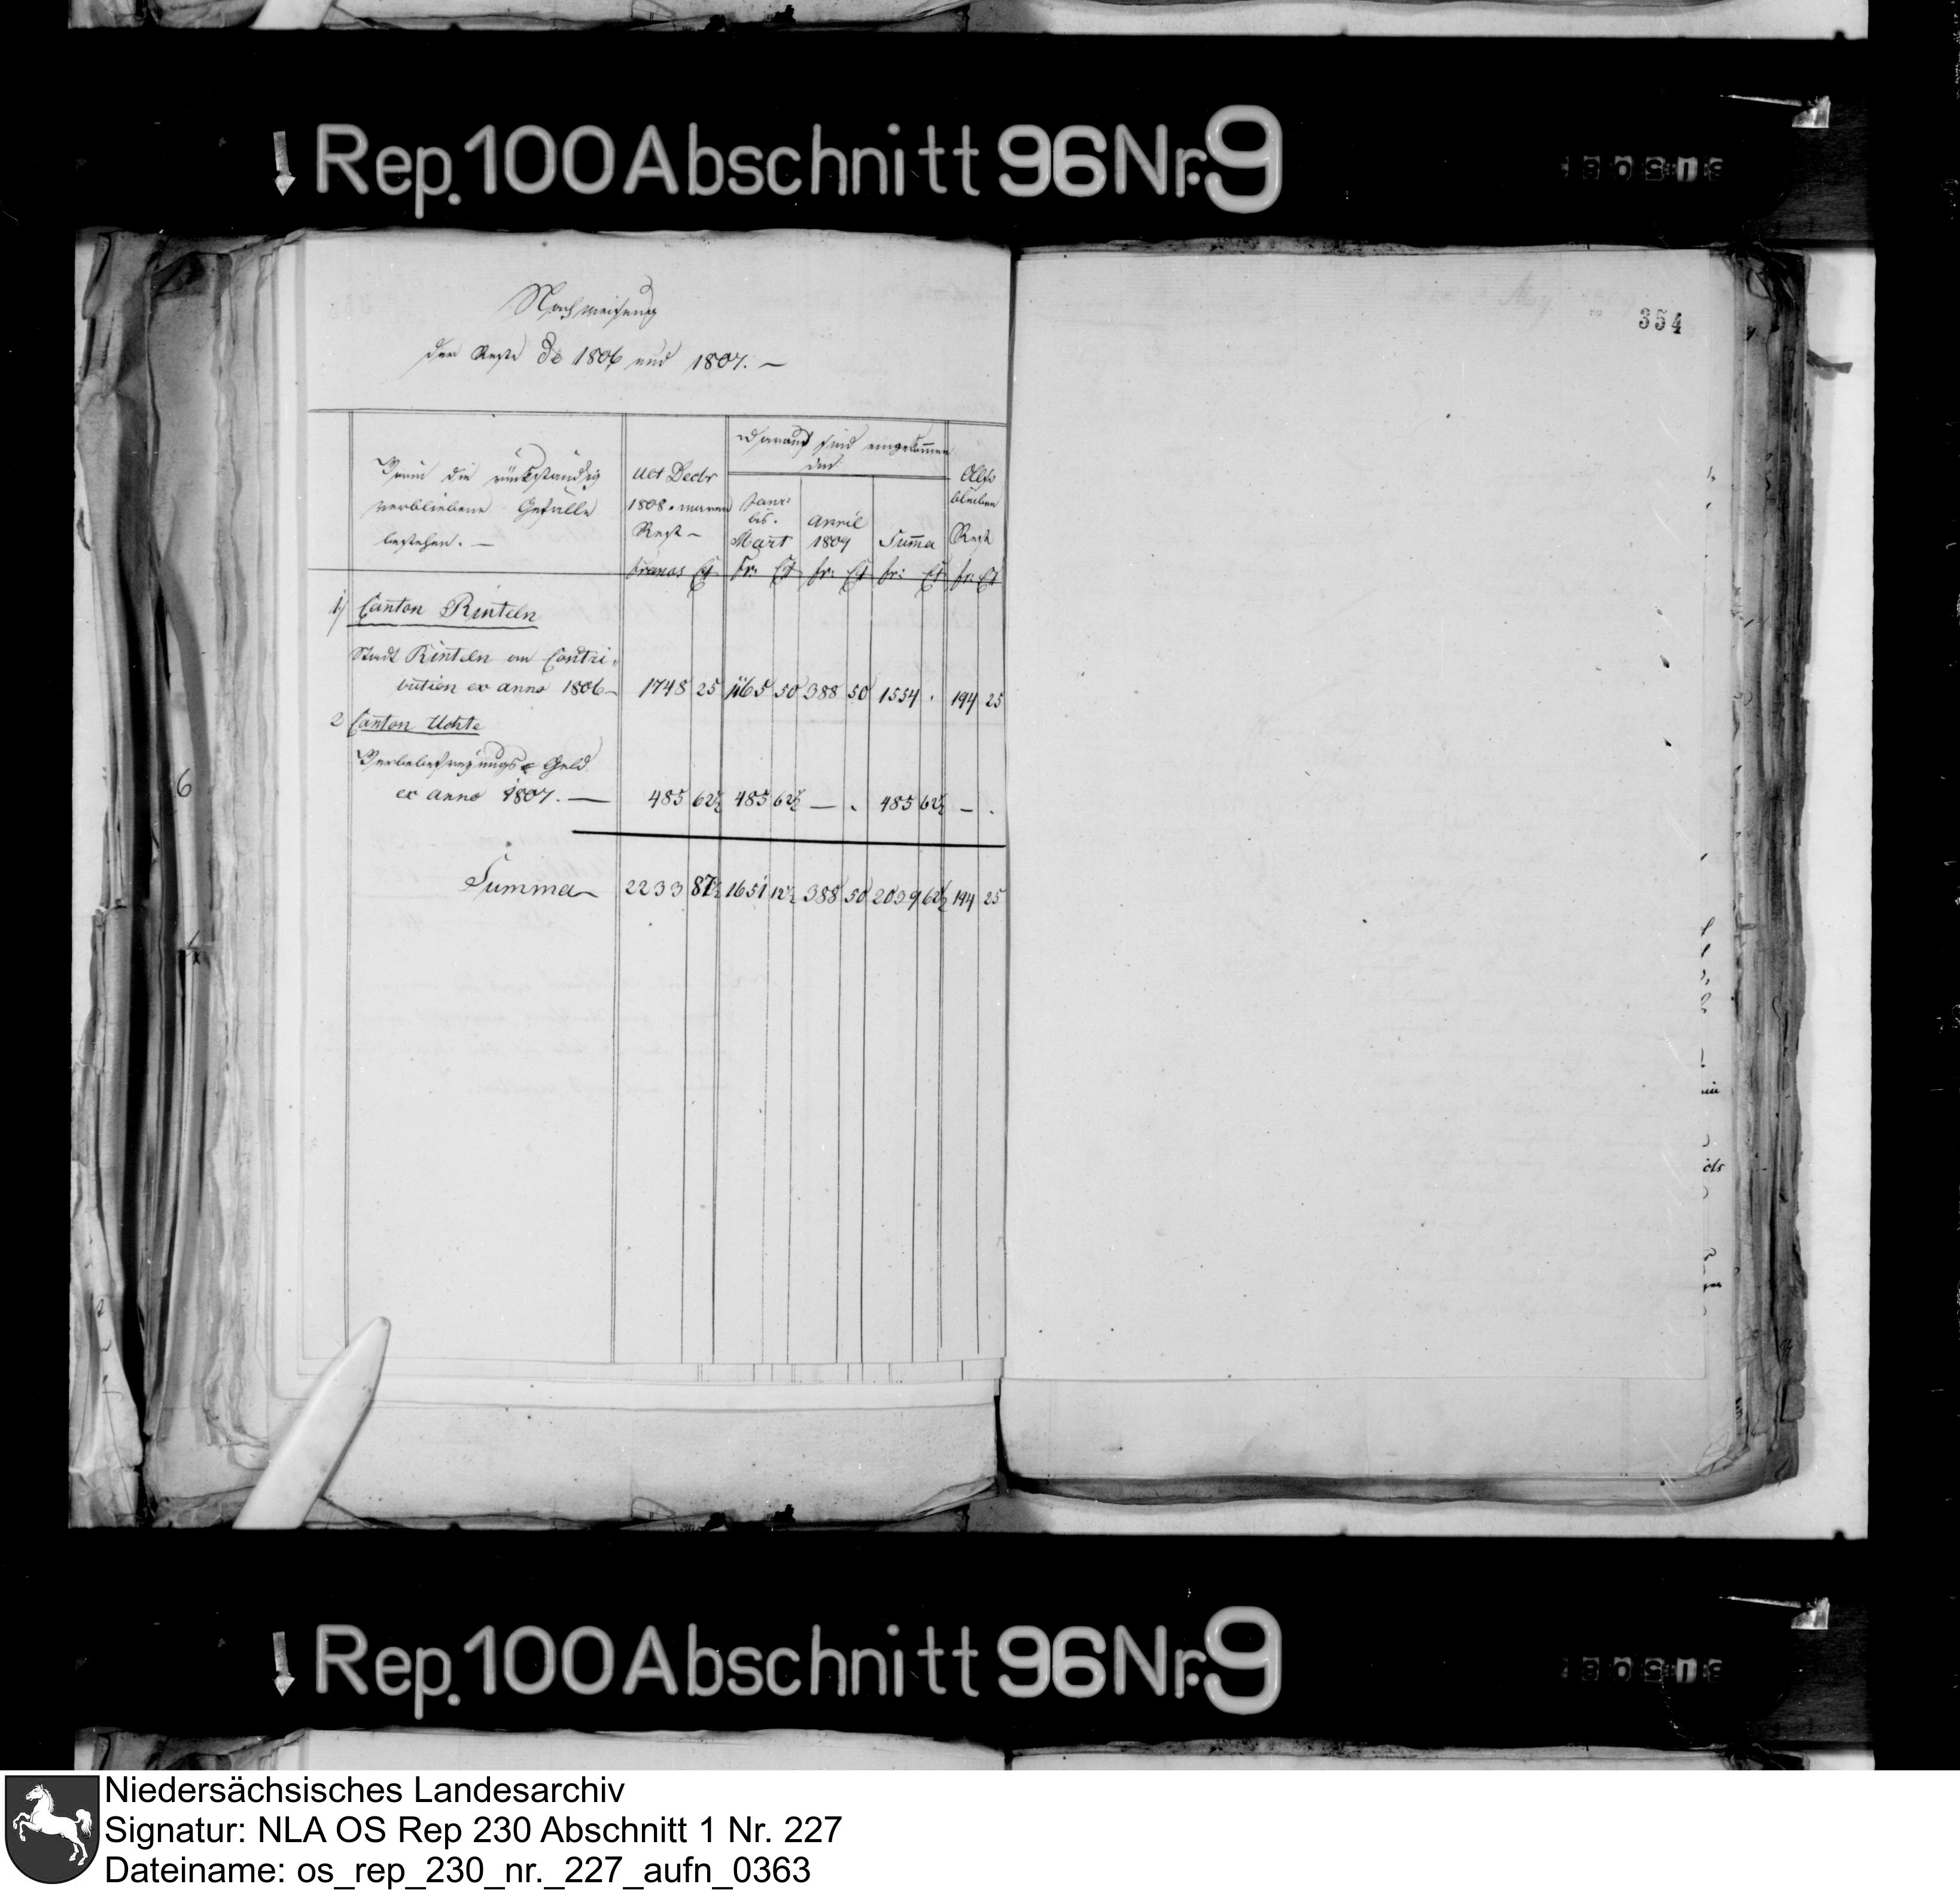 Rep. 100 Abschnitt 96 Nr. 9
354
Nachweisung
der Reste de 1806 und 1807. —
Worin die rückständig
verbliebene Gefälle
bestehen. —
ult Decbr
1808. waren
Rest —
francs Ct
Darauf sind eingekommen
im
Janr:
bis.
Mart
fr: Ct
April
1809
fr: Ct
Summa
fr: Ct
Also
bleiben
Rest
fr: Ct
1) Canton Rinteln
Stadt Rinteln an Contri-
bution ex anno 1806 — 1748 25 1165 50 388 50 1554 . 194 25
2 Canton Uchte
Geld
ex anno 1807. — 485 62½ 485 62½ — . 485 62½ — .
Summa — 2233 87½ 1651 12½ 388 50 2039 62½ 194 25
6
Rep. 100 Abschnitt 96 Nr. 9
Niedersächsisches Landesarchiv
Signatur: NLA OS Rep 230 Abschnitt 1 Nr. 227
Dateiname: os_rep_230_nr._227_aufn_0363